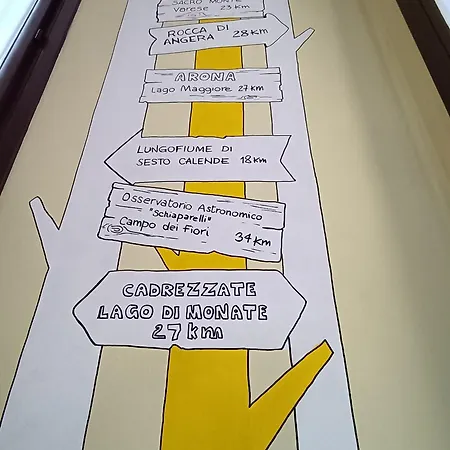 SACRO MONTE
Varese 23 km
ROCCA DI
ANGERA 28 Km
ARONA
Lago Maggiore 27 km
LUNGOFIUME DI
SESTO CALENDE 18 km
Osservatorio Astronomico
"Schiaparelli"
Campo dei Fiori 34 km
CADREZZATE
LAGO DI MONATE
27 km